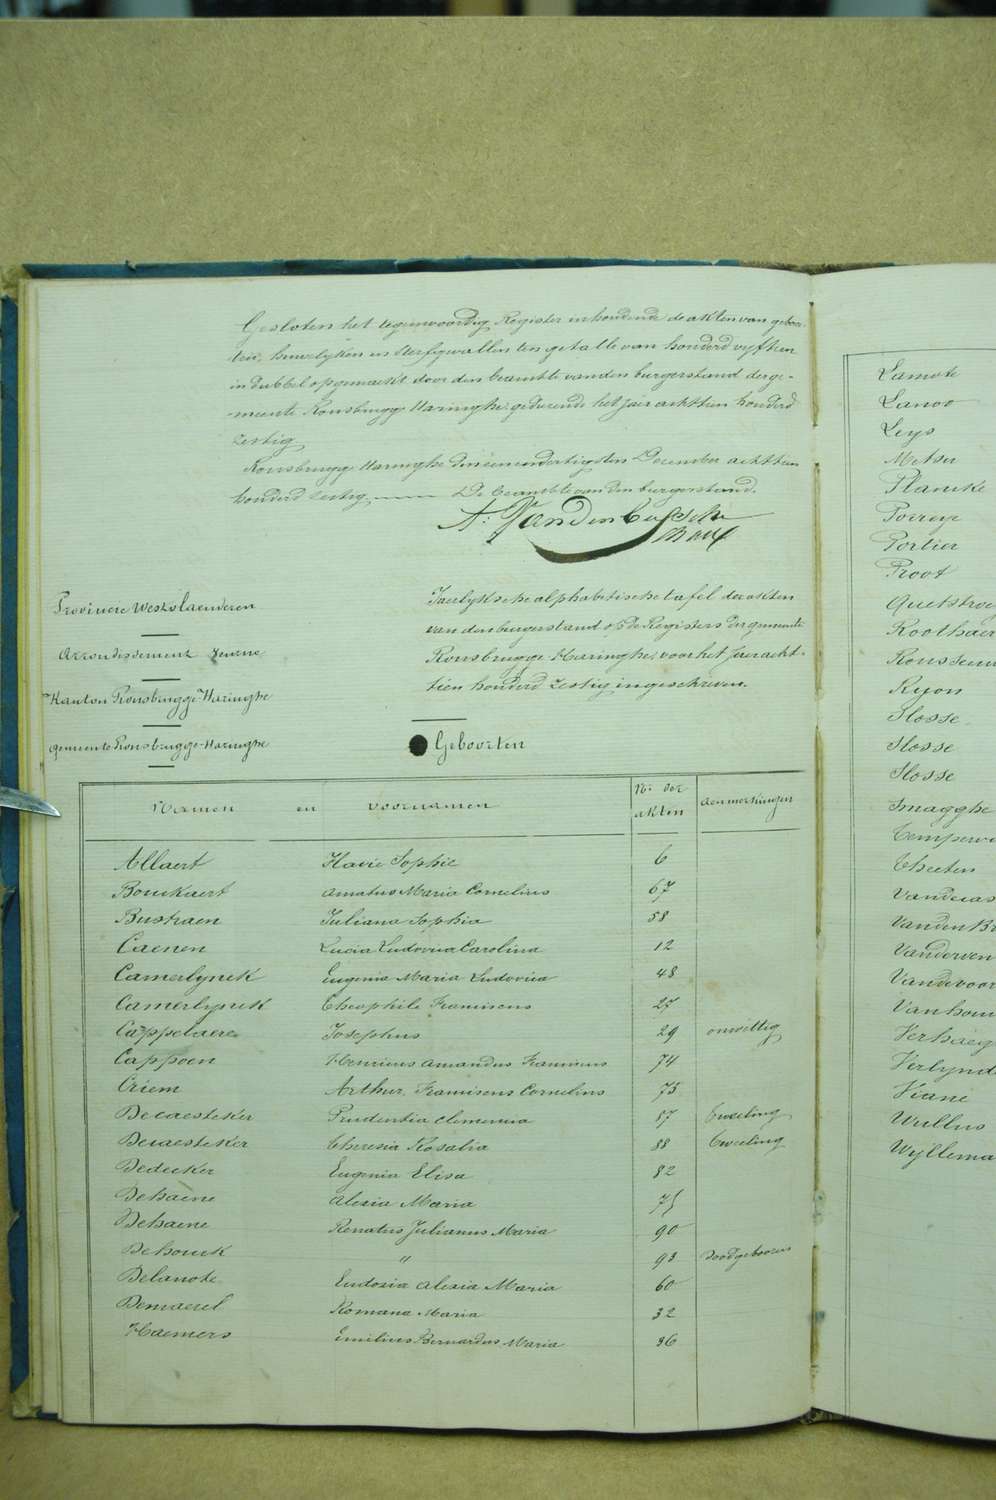 Gesloten het tegenwoordig Register inhoudende de akten van geboor-
ten, huwelijken en sterfgevallen ten getalle van honderd vyftien
in dubbel opgemaekt door den beambte van den burgerstand der ge-
-meente Rousbrugge Haringhe gedurende het jaer achttien honderd
zestig
Rousbrugge Haringhe den eenendertigsten December achttien
honderd zestig De beambte van den burgerstand.
A: Vandenbussche
Provincie Westvlaenderen
Arrondissement Veurne
Kanton Rousbrugge Haringhe
gemeente Rousbrugge-Haringhe
Jaerlyksche alphabetische tafel der akten
van den burgerstand op de Registers der gemeente
Rousbrugge Haringhe, voor het jaer acht-
tien honderd zestig ingeschreven.
Geboorten
Namen en voornamen No der akten aenmerkingen
Allaert Flavie Sophie 6
Bouckaert Amatus Maria Cornelius 67
Bustraen Juliana Sophia 58
Caenen Lucia Ludovica Carolina 12
Camerlynck Eugenia Maria Ludovica 48
Camerlynck Theophile Franciscus 27
Cappelaere Josephus 29 onwettig
Cappoen Henricus Amandus Franciscus 74
Criem Arthur Franciscus Cornelius 75
Decaesteker Prudentia Clemencia 87 tweeling
Decaesteker Theresia Rosalia 88 tweeling
Dedecker Eugenia Elisa 82
Dehaene Alexia Maria
Dehaene Renatus Julianus Maria 90
Dehouck " 93 doodgeboren
Delanote Eudoxia Alexia Maria 60
Demaerel Romana Maria 32
Haemers Emilius Bernardus Maria 36
Lamote
Lanoo
Leys
Metsu
Plancke
Porreye
Portier
Proot
Quetstroey
Roothaer
Ryon
Slosse
Slosse
Slosse
Smagghe
Theeten
Vanden B
Vanderven
Vandevoor
Vanhou
Verhaeg
Verlynd
Viane
Wullus
Wyllema